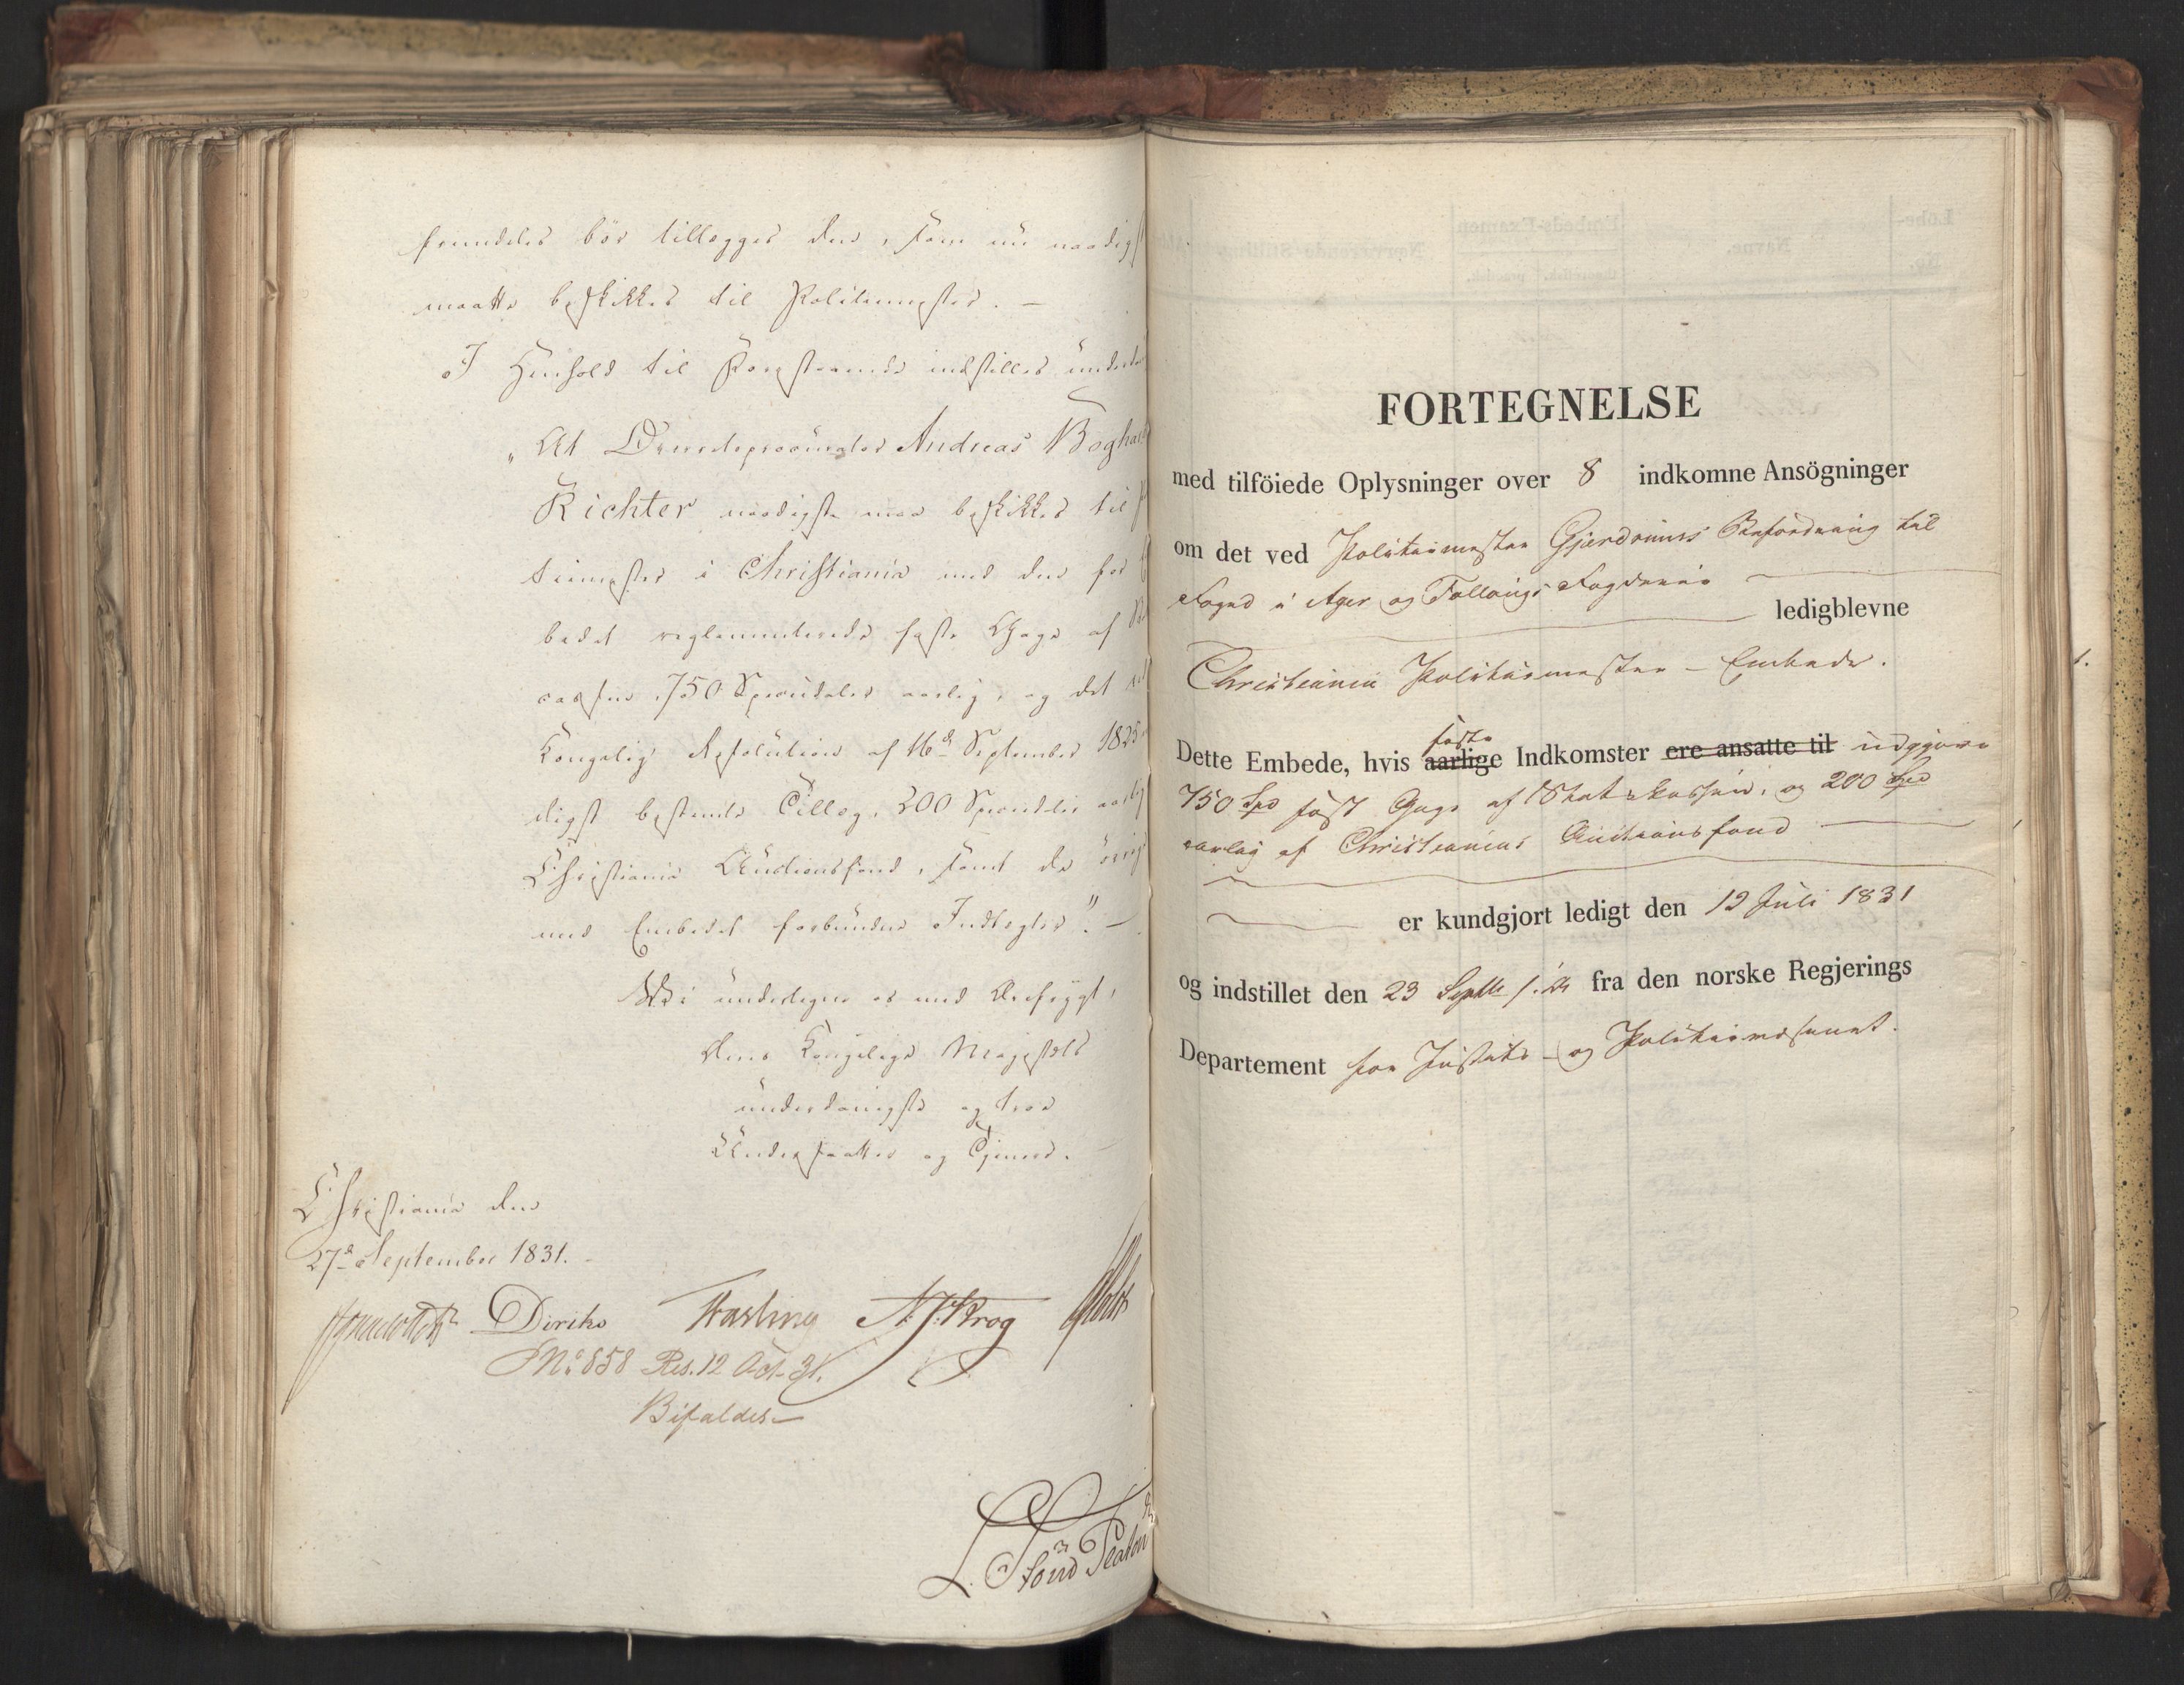 fremdeles bör tillægges den, som nu naadigst
maatte beskikkes til Politiemester. —
I Henhold til Forestaaende indstilles underda
„At Overretsprocurator Andreas Bogha
Richter naadigst maa beskikkes til P
tiemester i Christiania med den for E
bedet reglementerede faste Gage af S
cassen, 750 Speciedaler aarlig, og det ved
Kongelig Resolution af 16de September 1825
digst bestemte Tillæg, 200 Speciedaler aarlig
Christiania Auctionsfond, samt de övrig
med Embedet forbundne Indtægter”. —
Vi undertegne os med Ærefrygt,
Deres Kongelige Majestæts
underdanigste og troe
Undersaatter og Tjenere.
Christiania den
27de September 1831. -
Diriks Fasting N. J. Krog Holst
No: 858 Res. 12 Oct. 31.
Bifaldes
FORTEGNELSE
med tilföiede Oplysninger over 8 indkomne Ansögninger
om det ved Politiemester Gjerdrums Befordring til
Foged i Ager og Follougs Fogderie ledigblevne
Christiania Politiemester - Embede.
faste
Dette Embede, hvis aarlige Indkomster ere ansatte til udgjøre
750 Spd fast Gage af Statskassen, og 200 Spd
aarlig af Christianias Auctionsfond
er kundgjort ledigt den 12 Juli 1831
og indstillet den 23 Septbr s. A. fra den norske Regjerings
Departement for Justits- og Politievæsenet.